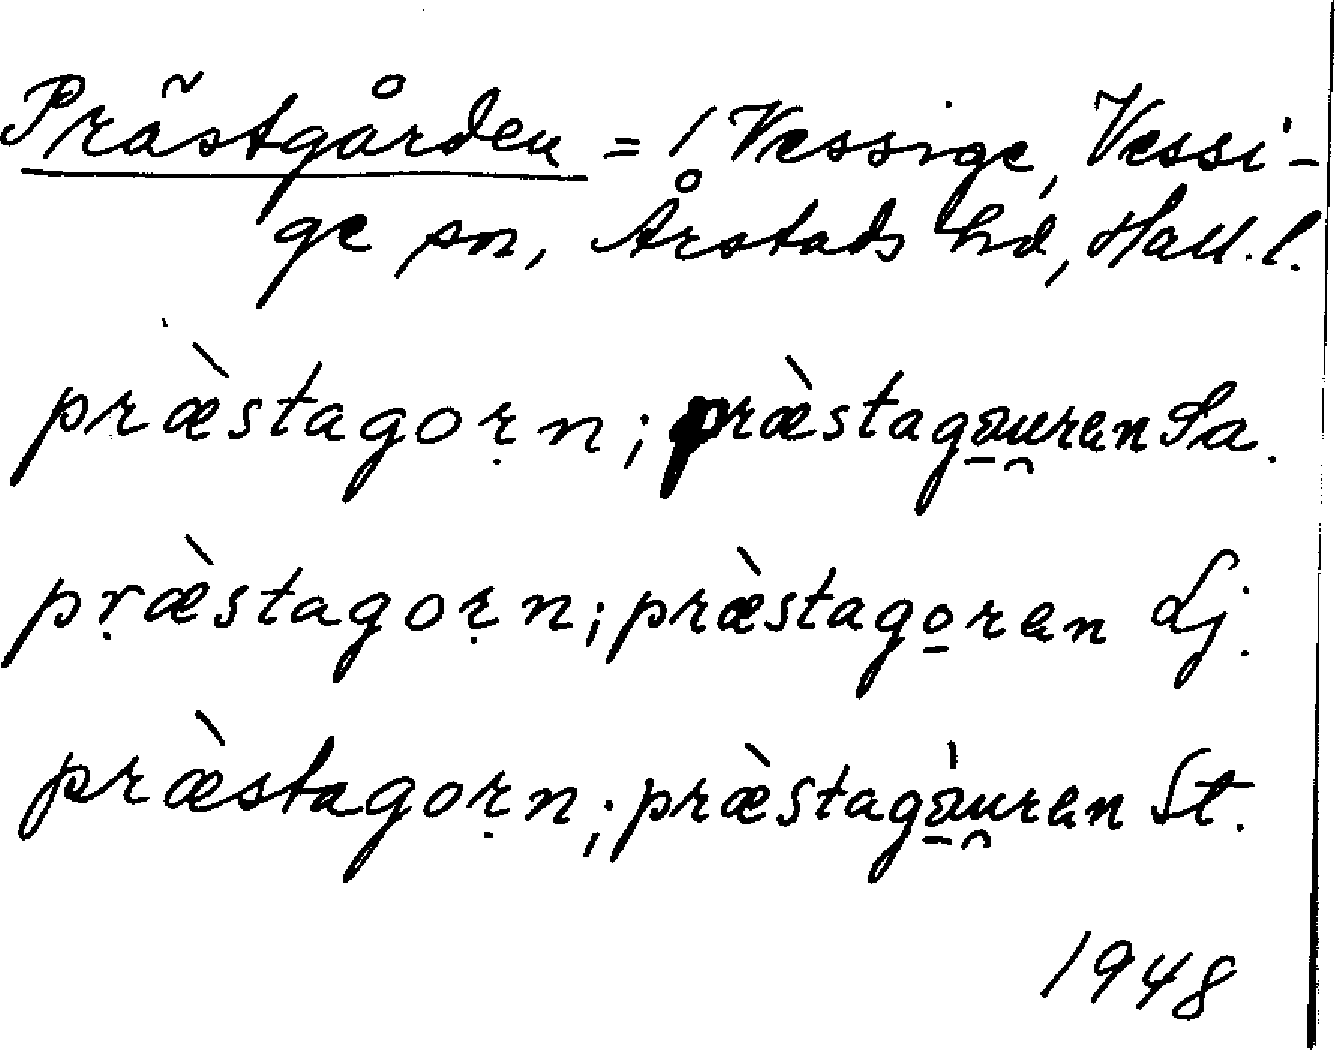 Prästgården = 1 Vessige, Vessi-
ge sn, Årstads hd, Hall. l.
præ̀stagoṛn; præ̀stago̱u̯ren Sa.
pṛæ̀stagoṛn; præ̀stago̱ren Lj.
præ̀stagoṛn; præ̀stago̱̍u̯ren St.
1948